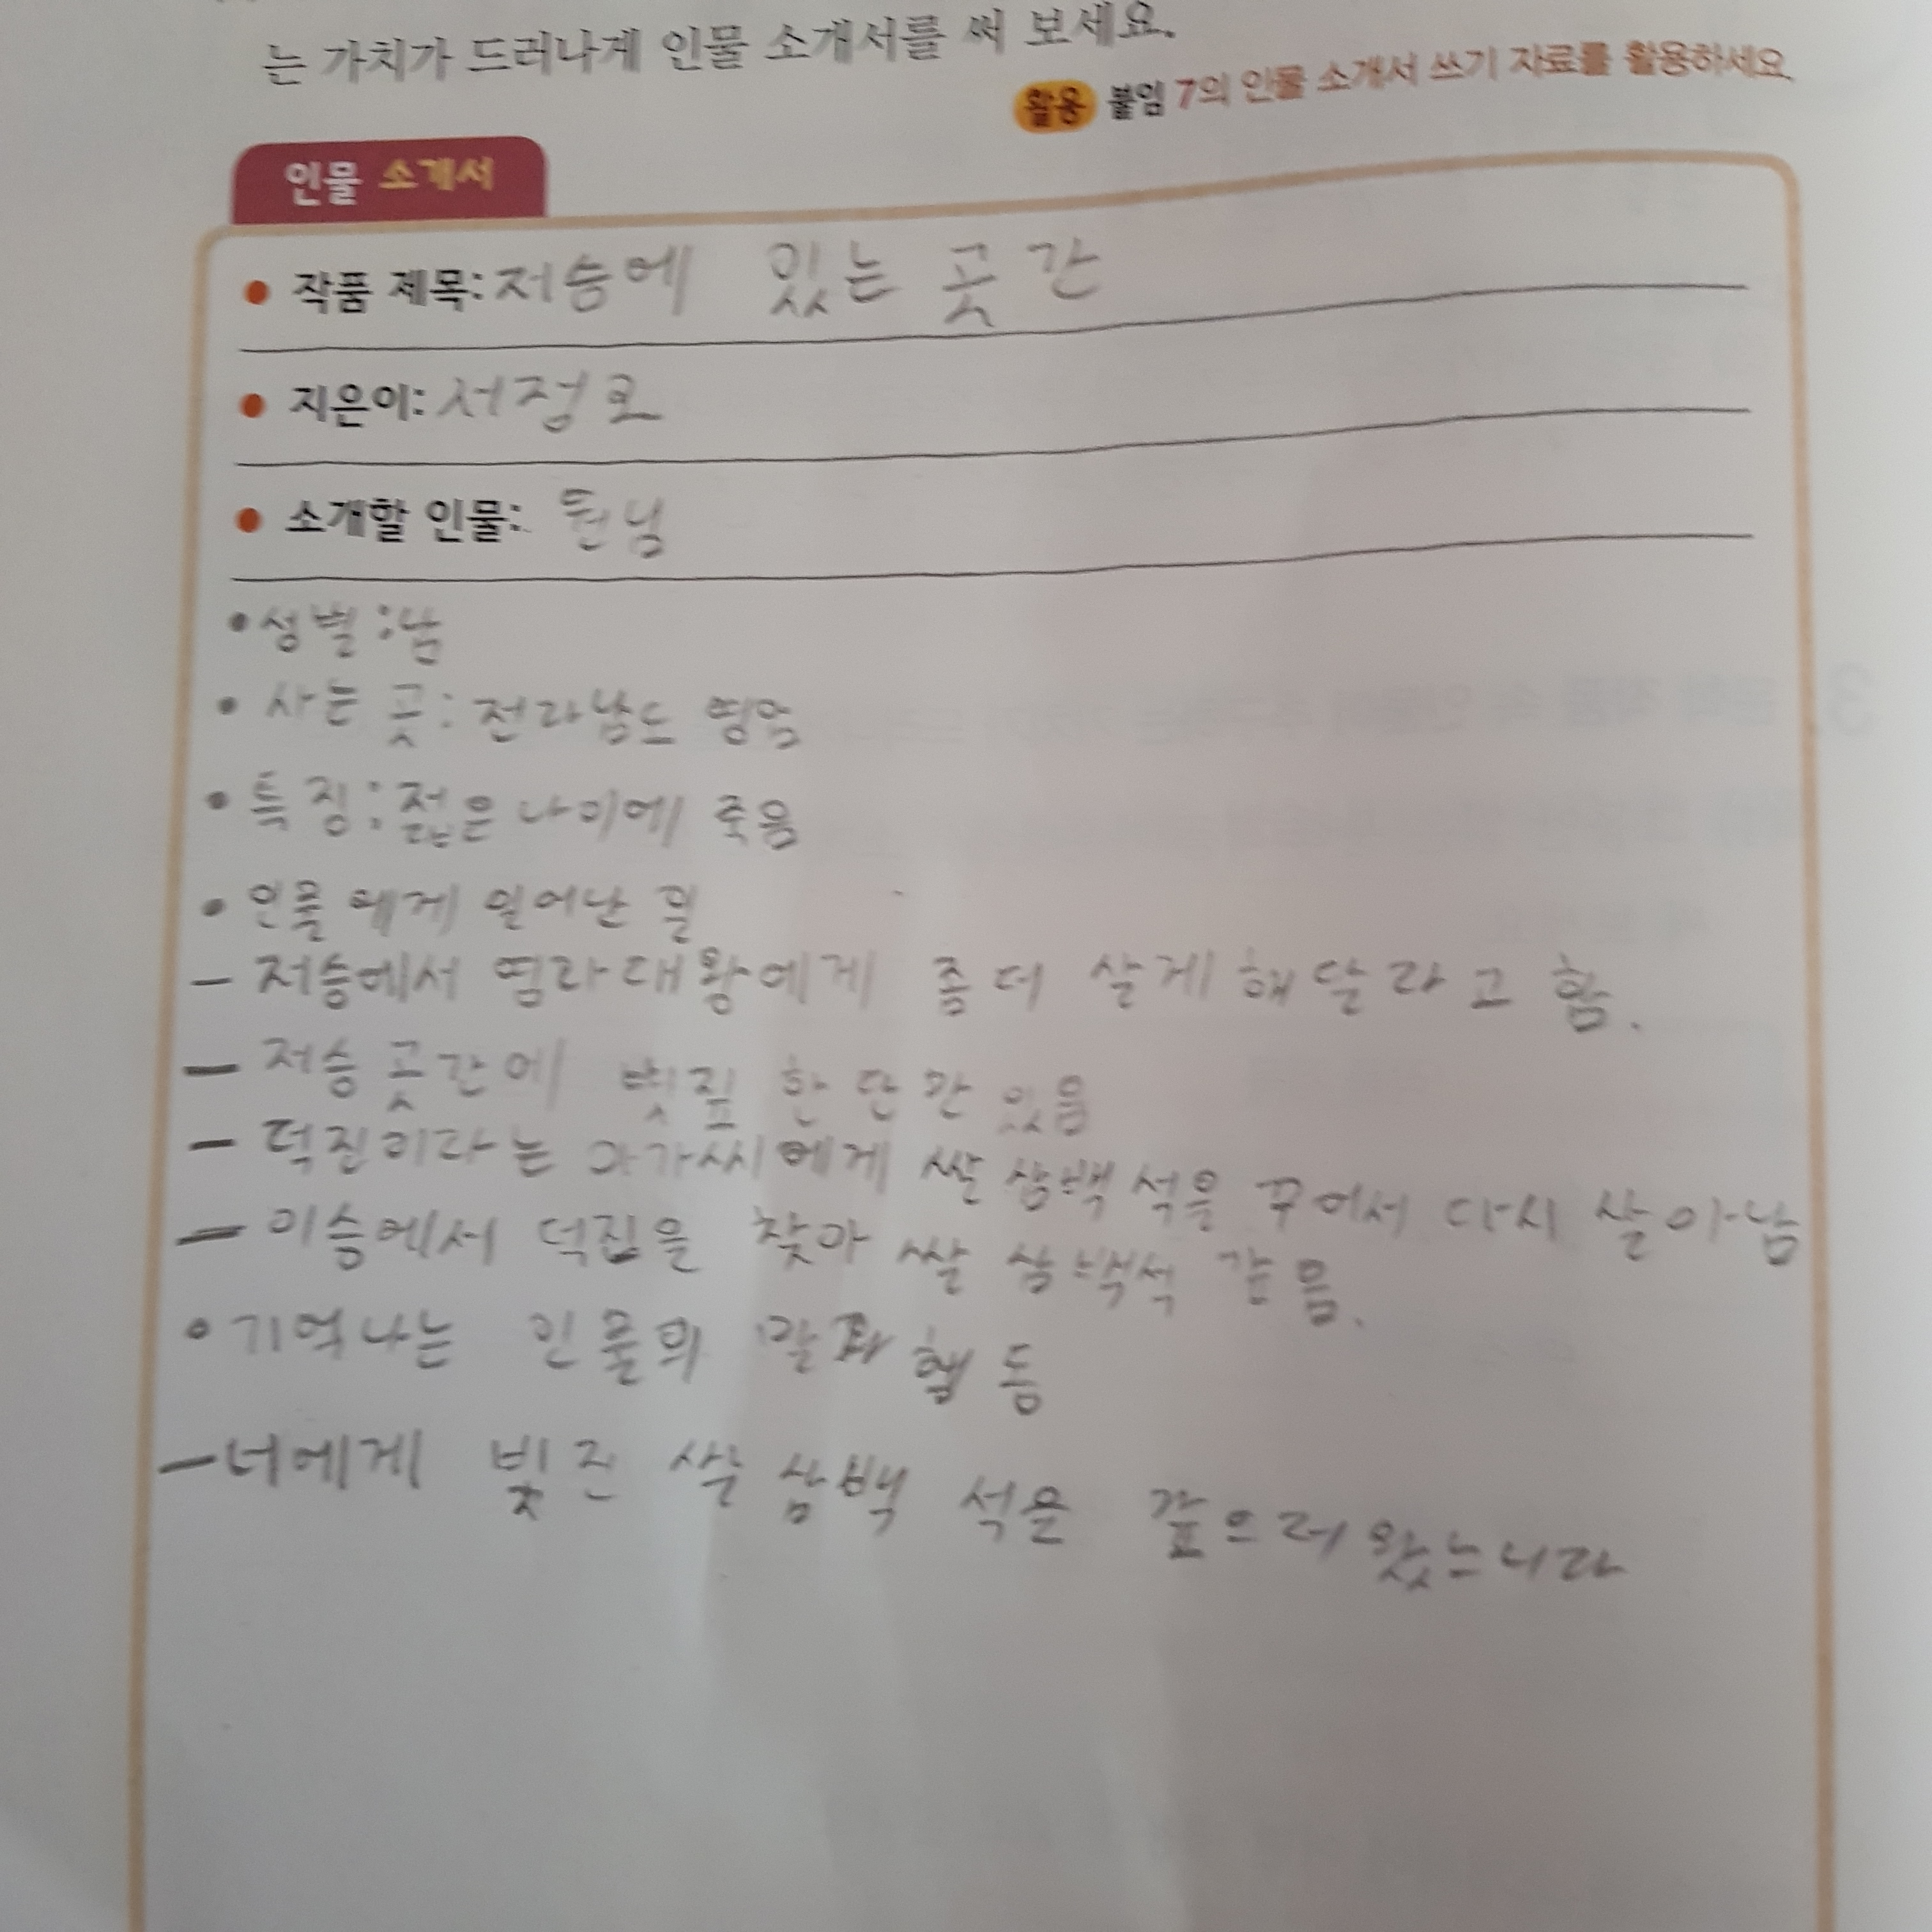 는 가치가 드러나게 인물 소개서를 써 보세요.
활용 붙임 7의 인물 소개서 쓰기 자료를 활용하세요.
인물 소개서
● 작품 제목: 저승에 있는 곳간
● 지은이: 서정오
● 소개할 인물: 원님
• 성별 : 남
• 사는 곳 : 전라남도 영암
• 특징 : 젊은 나이에 죽음
• 인물에게 일어난 일
– 저승에서 염라대왕에게 좀더 살게 해달라고 함.
– 저승 곳간에 볏짚 한 단만 있음
– 덕진이라는 아가씨에게 쌀 삼백 석을 꾸어서 다시 살아남
– 이승에서 덕진을 찾아 쌀 삼백석 갚음.
• 기억나는 인물의 말과 행동
– 너에게 빚진 쌀 삼백 석을 갚으러 왔느니라